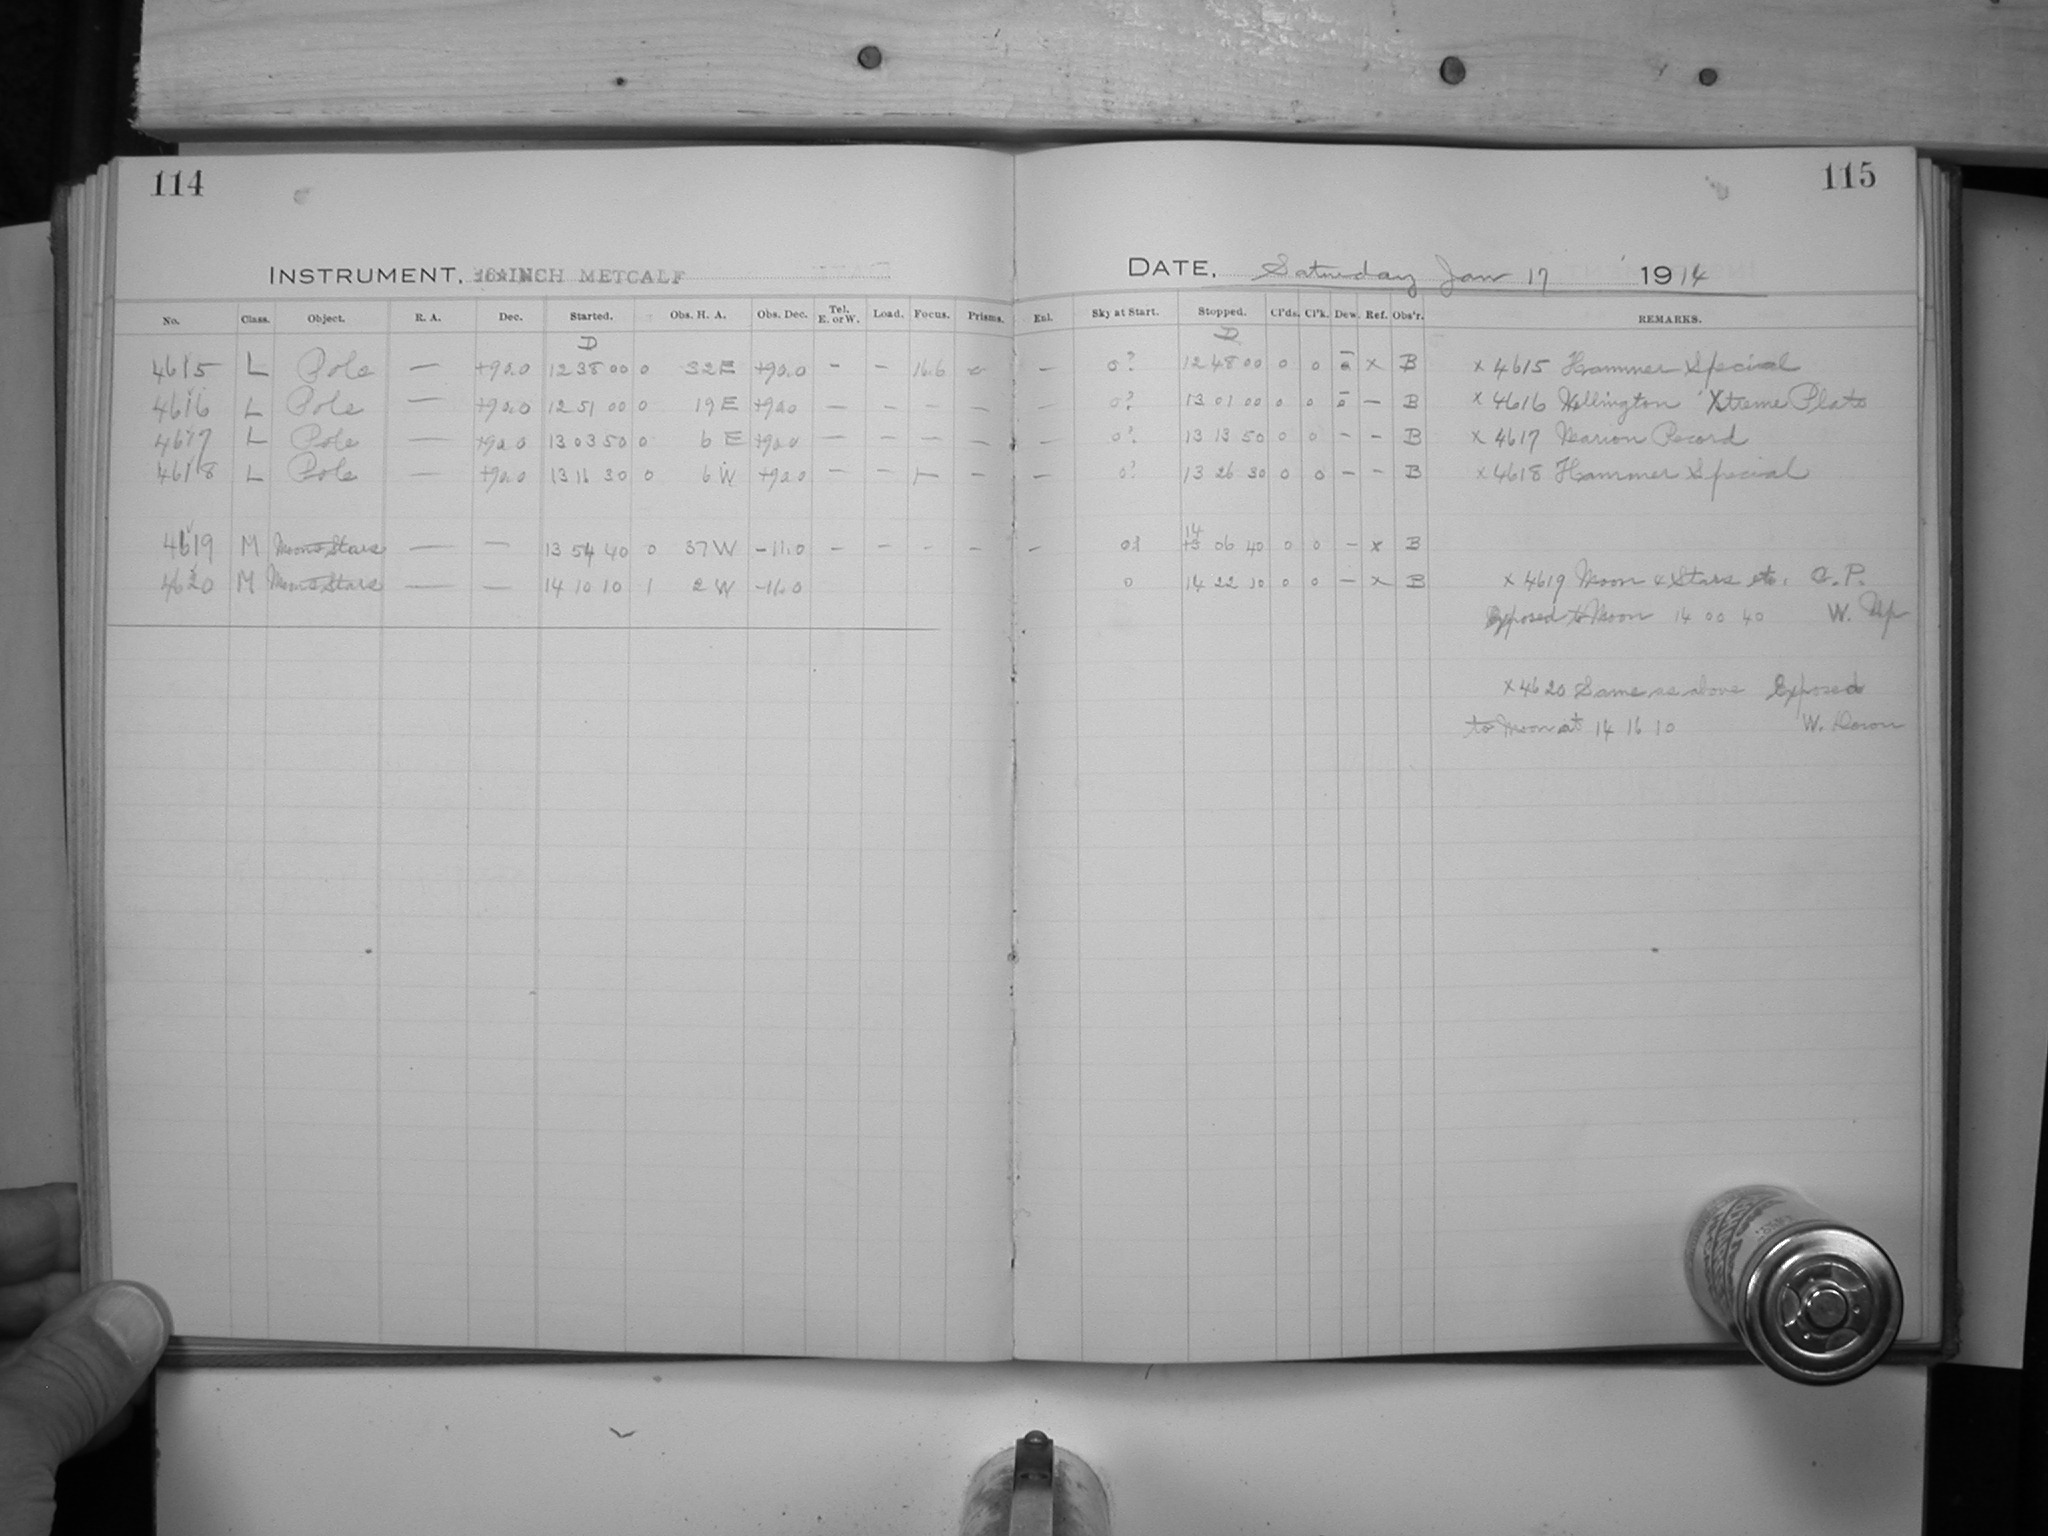 114
115
INSTRUMENT, 16 INCH METCALF
DATE, Saturday Jan 17 1914
No. Class. Object. R. A. Dec. Started. Obs. H. A. Obs. Dec. Tel. E. or W. Load. Focus. Prisms. Enl. Sky at Start. Stopped. Cl'ds. Cl'k. Dew. Ref. Obs'r. REMARKS.
D D
4615 L Pole — +90.0 12 38 00 0 32 E +90.0 - - 16.6 — 0? 12 48 00 0 0 x B x 4615 Hammer Special
4616 L Pole — +90.0 12 51 00 0 19 E +90.0 — — — — — 0? 13 01 00 0 0 — B x 4616 Wellington Xtreme Plate
4617 L Pole — +90.0 13 03 50 0 6 E +90.0 — — — — — 0? 13 13 50 0 0 - - B x 4617 Marion Record
4618 L Pole — +90.0 13 16 30 0 6 W +90.0 — — — — — 0? 13 26 30 0 0 — - B x 4618 Hammer Special
4619 M Moon & Stars — — 13 54 40 0 37 W -11.0 - - - - - 14 06 40 0 0 — x B
4620 M Moon & Stars — — 14 10 10 1 2 W -11.0 0 14 22 10 0 0 — x B x 4619 Moon & Stars etc.
Exposed to Moon 14 00 40 W. Up
x 4620 Same as above Exposed
to Moon at 14 16 10 W. Down